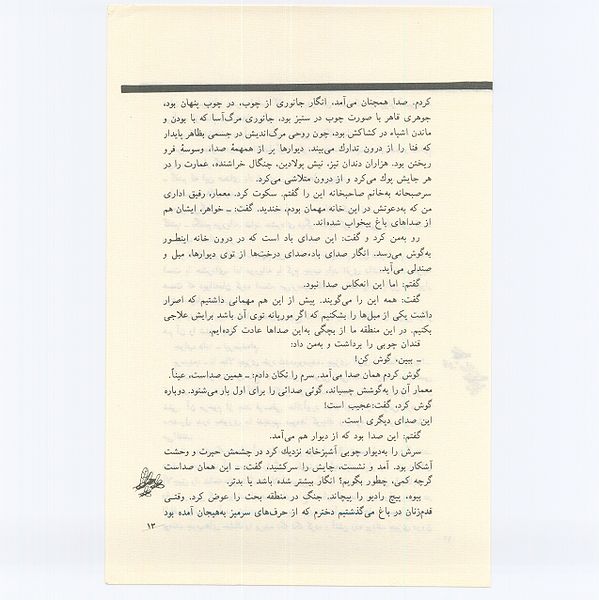 کردم. صدا همچنان می‌آمد، انگار جانوری از چوب، در چوب پنهان بود،
جوهری قاهر با صورت چوب در ستیز بود، جانوری مرگ‌آسا که با بودن و
ماندن اشیاء در کشاکش بود، چون روحی مرگ‌اندیش در جسمی بظاهر پایدار
که فنا را از درون تدارك می‌بیند. دیوارها پر از همهمهٔ صدا، وسوسهٔ فرو
ریختن بود. هزاران دندان تیز، نیش پولادین، چنگال خراشنده، عمارت را در
هر جایش پوك می‌کرد و از درون متلاشی می‌کرد.
سرصبحانه به‌خانم صاحبخانه این را گفتم. سکوت کرد. معمار، رفیق اداری
من که به‌دعوتش در این خانه مهمان بودم، خندید. گفت: ـ خواهر، ایشان هم
از صداهای باغ بیخواب شده‌اند.
رو به‌من کرد و گفت: این صدای باد است که در درون خانه اینطور
به‌گوش می‌رسد. انگار صدای باد، صدای درخت‌ها از توی دیوارها، مبل و
صندلی می‌آید.
گفتم: اما این انعکاس صدا نبود.
گفت: همه این را می‌گویند. پیش از این هم مهمانی داشتیم که اصرار
داشت یکی از مبل‌ها را بشکنیم که اگر موریانه توی آن باشد برایش علاجی
بکنیم. در این منطقه ما از بچگی به‌این صداها عادت کرده‌ایم.
قندان چوبی را برداشت و به‌من داد:
ـ ببین، گوش کن!
گوش کردم همان صدا می‌آمد. سرم را تکان دادم: ـ همین صداست، عیناً.
معمار آن را به‌گوشش چسباند، گوئی صدائی را برای اول بار می‌شنود. دوباره
گوش کرد، گفت: عجیب است!
این صدای دیگری است.
گفتم: این صدا بود که از دیوار هم می‌آمد.
سرش را به‌دیوار چوبی آشپزخانه نزدیك کرد در چشمش حیرت و وحشت
آشکار بود. آمد و نشست، چایش را سرکشید، گفت: ـ این همان صداست
گرچه کمی، چطور بگویم؟ انگار بیشتر شده باشد یا بدتر.
بیوه، پیچ رادیو را پیچاند. جنگ در منطقه بحث را عوض کرد. وقتی
قدم‌زنان در باغ می‌گذشتیم دخترم که از حرف‌های سرمیز به‌هیجان آمده بود
۱۳